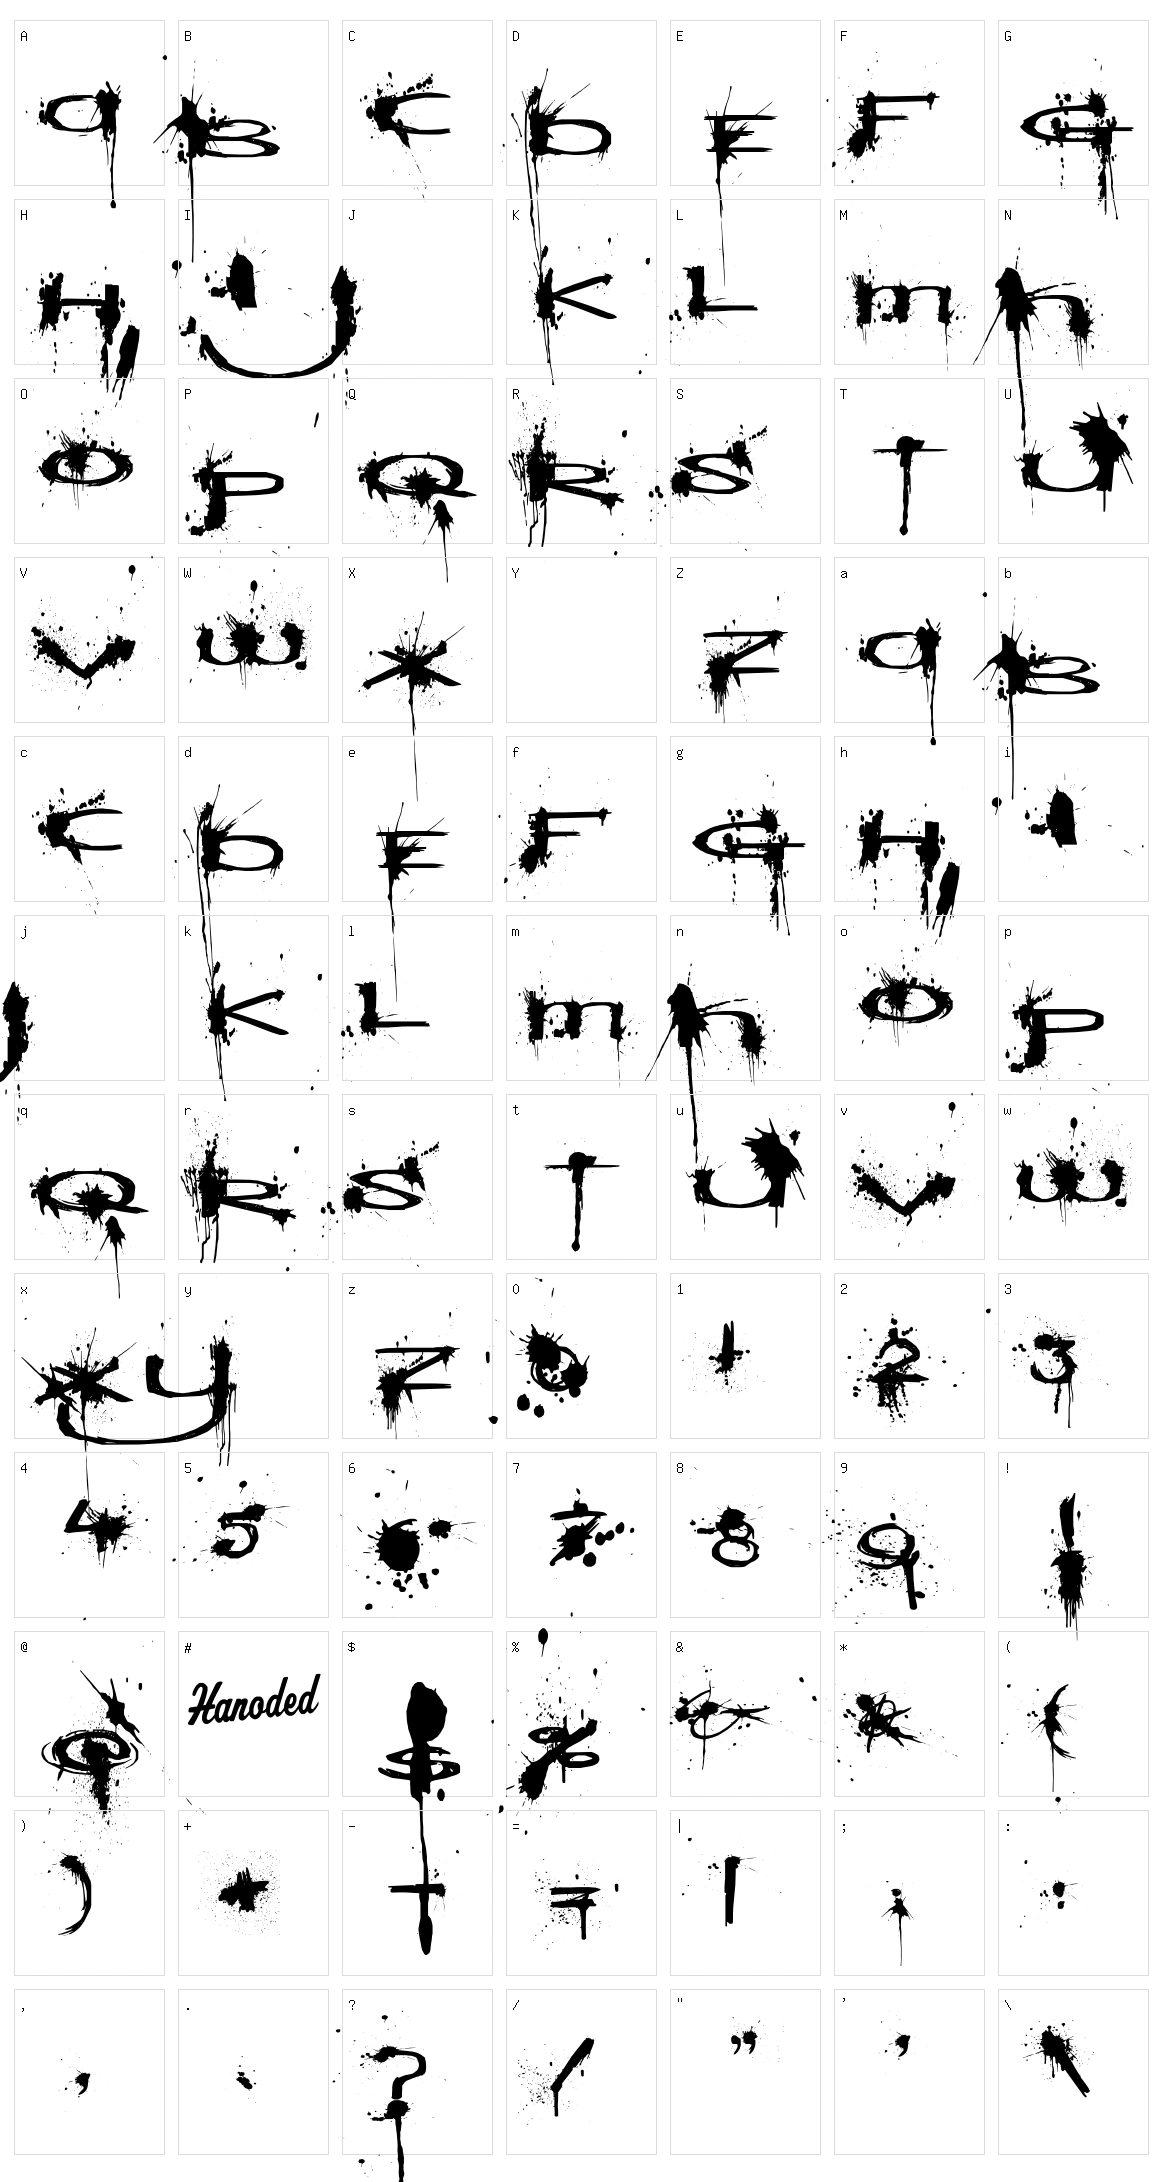 A B C D E F G
H I J K L M N
O P Q R S T U
V W X Y Z a b
c d e f g h i
j k l m n o p
q r s t u v w
x y z 0 1 2 3
4 5 6 7 8 9 !
@ # $ % & * (
Hanoded
) + - = | ; :
, . ? / " ' \